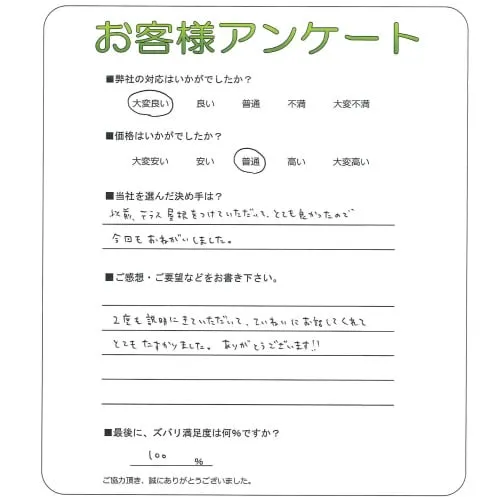 お客様アンケート
■弊社の対応はいかがでしたか?
大変良い 良い 普通 不満 大変不満
■価格はいかがでしたか?
大変安い 安い 普通 高い 大変高い
■当社を選んだ決め手は?
以前、テラス屋根をつけていただいて、とても良かったので
今回もおねがいしました。
■ご感想・ご要望などをお書き下さい。
2度も説明にきていただいて、ていねいにお話してくれて
とてもたすかりました。ありがとうございます!!
■最後に、ズバリ満足度は何%ですか?
100 %
ご協力頂き、誠にありがとうございました。